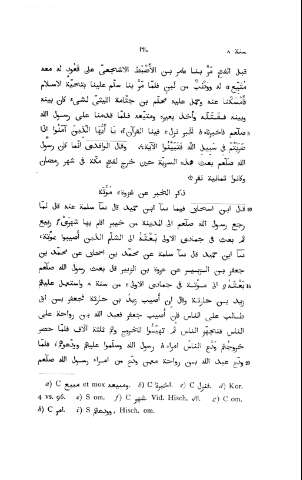 سنة ٨
١٦١٠
قبل انهم مرّ بنا عامر بن الأَضْبَط الاشجعىّ على قَعُود له معه
مُتَيِّع له ووَطْب من لبن فلمّا مرّ بنا سلّم علينا بتحيّة الاسلام
فأَمسكنا عنه وحمل عليه محلّم بن جثّامة الليثىّ لشىء كان بينه
وبينه فقتله وأخذ بعيره ومتيّعه فلمّا قدمنا على رسول الله
صلّعم فاخبرناه الخبر نزل فينا القرآن يَا أَيُّهَا الَّذِينَ آمَنُوا إِذَا
ضَرَبْتُمْ فِى سَبِيلِ اللّهِ فَتَبَيَّنُوا الآية، وقال الواقدى انّما كان رسول
الله صلّعم بعث هذه السريّة حين خرج لفتح مكّة فى شهر رمضان
وكانوا ثمانية نفر
ذكر الخبر عن غزوة مُؤْتَة
قال ابن اسحاق فيما سآ ابن حميد قال سآ سلمة عنه قال لمّا
رجع رسول الله صلّعم الى المدينة من خيبر اقام بها شهرَىْ ربيع
ثم بعث فى جمادى الاولى بَعْثَه الى الشأم الذين أصيبوا بمؤتة،
سآ ابن حميد قال سآ سلمة عن محمد بن اسحاق عن محمد بن
جعفر بن الزبير عن عروة بن الزبير قال بعث رسول الله صلّعم
بَعْثَه الى مؤتة فى جمادى الاولى من سنة ٨ واستعمل عليهم
زيد بن حارثة وقال ان أصيب زيد بن حارثة فجعفر بن ابى
طالب على الناس فإن أصيب جعفر فعبد الله بن رواحة على
الناس فتجهّز الناس ثم تهيّئوا للخروج وهم ثلثة آلاف فلمّا حضر
خروجهم ودّع الناس امراء رسول الله وسلّموا عليهم وودّعوهم فلمّا
ودّع عبد الله بن رواحة مع من ودّع من امراء رسول الله صلّعم
a) C متبيع et mox ومتبيعه. b) C اخبره. c) C فنزل. d) Kor.
4 vs. 96. e) S om. f) C شهر. Vid. Hisch. g) C om.
h) C امر. i) S وودعهم, Hisch. om.